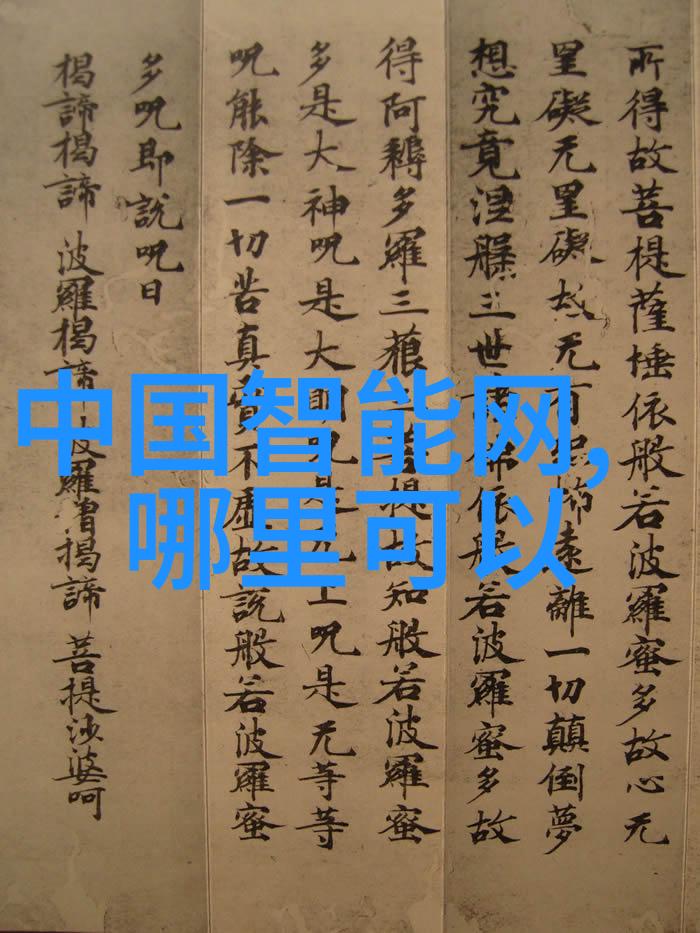 中国智能网,
哪里可以
所得故菩提薩埵依般若波羅蜜多故心无
罣礙无罣礙故无有恐怖遠離一切顛倒夢
想究竟涅槃三世諸佛依般若波羅蜜多故
得阿耨多羅三藐菩提故知般若波羅蜜
多是大神呪是大明呪是无上呪是无等等
呪能除一切苦真實不虛故說般若波羅蜜
多呪即說呪曰
揭諦揭諦 波羅揭諦 波羅僧揭諦 菩提沙婆呵